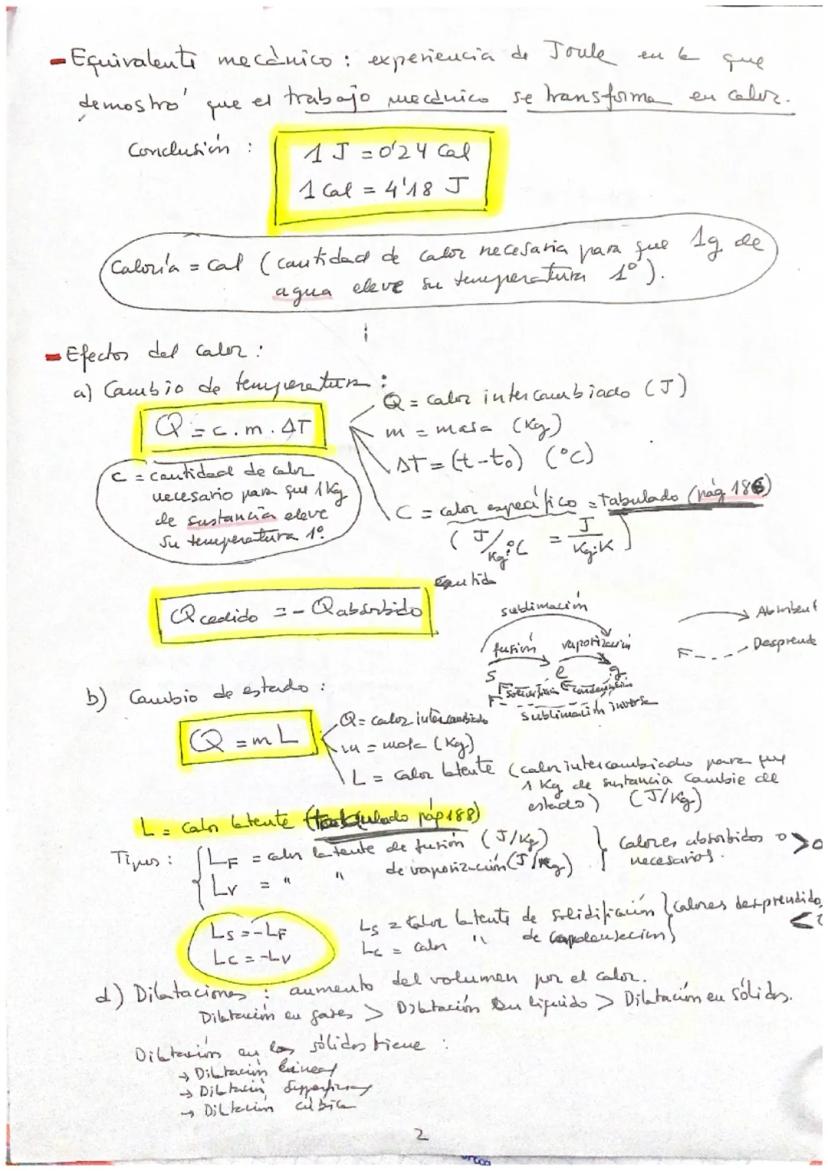 - Equivalente mecánico: experiencia de Joule en la que
demostró que el trabajo mecánico se transforma en calor.
Conclusión:
1 J = 0'24 Cal
1 Cal = 4'18 J
Caloría = cal (cantidad de calor necesaria para que 1g de
agua eleve su temperatura 1º).
- Efectos del calor:
a) Cambio de temperatura:
Q = c. m. ΔT
Q = calor intercambiado (J)
m = masa (Kg)
ΔT = (t-t₀) (ºC)
C = calor específico = tabulado (pág 186)
(J/Kg·ºC = J/Kg·K)
C = cantidad de calor
necesario para que 1Kg
de sustancia eleve
su temperatura 1º
Qcedido = - Qabsorbido
sublimación
fusión vaporización
S l g
solidificación condensación
sublimación inversa
Absorbent
Desprende
b) Cambio de estado:
Q = m L
Q = calor intercambiado
m = masa (Kg)
L = calor latente (calor intercambiado para que
1 Kg de sustancia cambie de
estado) (J/Kg)
L = calor latente (tabulado pág 188)
Tipos: LF = calor latente de fusión (J/Kg)
Lv = " " de vaporización (J/Kg)
Calores absorbidos o > 0
necesarios.
Ls = -LF
Lc = -Lv
Ls = calor latente de solidificación
Lc = calor " de condensación
Calores desprendido
<
d) Dilataciones: aumento del volumen por el calor.
Dilatación en gases > Dilatación en líquido > Dilatación en sólidos.
Dilatación en los sólidos tiene:
→ Dilatación lineal
→ Dilatación superficial
→ Dilatación cúbica
2